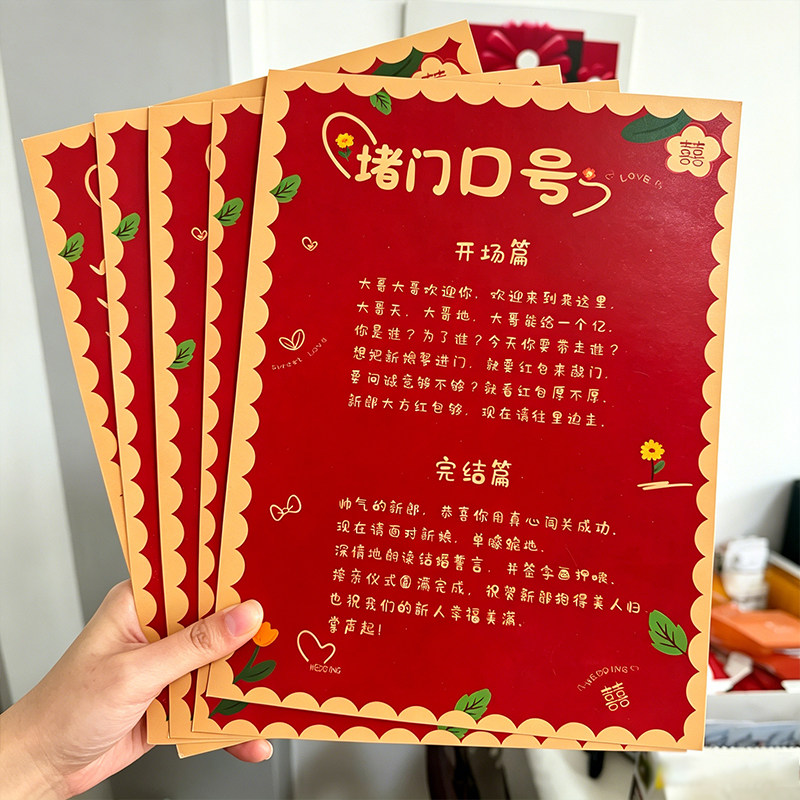 堵门口号
囍
LOVE
开场篇
大哥大哥欢迎你，欢迎来到来这里．
大哥天，大哥地，大哥能给一个亿．
你是谁？为了谁？今天你要带走谁？
想把新娘娶进门，就要红包来敲门．
要问诚意够不够？就看红包厚不厚．
新郎大方红包够，现在请往里边走．
Sweet Love
完结篇
帅气的新郎，恭喜你用真心闯关成功．
现在请面对新娘，单膝跪地．
深情地朗读结婚誓言，并签字画押哦．
接亲仪式圆满完成，祝贺新郎抱得美人归
也祝我们的新人幸福美满．
掌声起！
WEDDING
WEDDING
囍